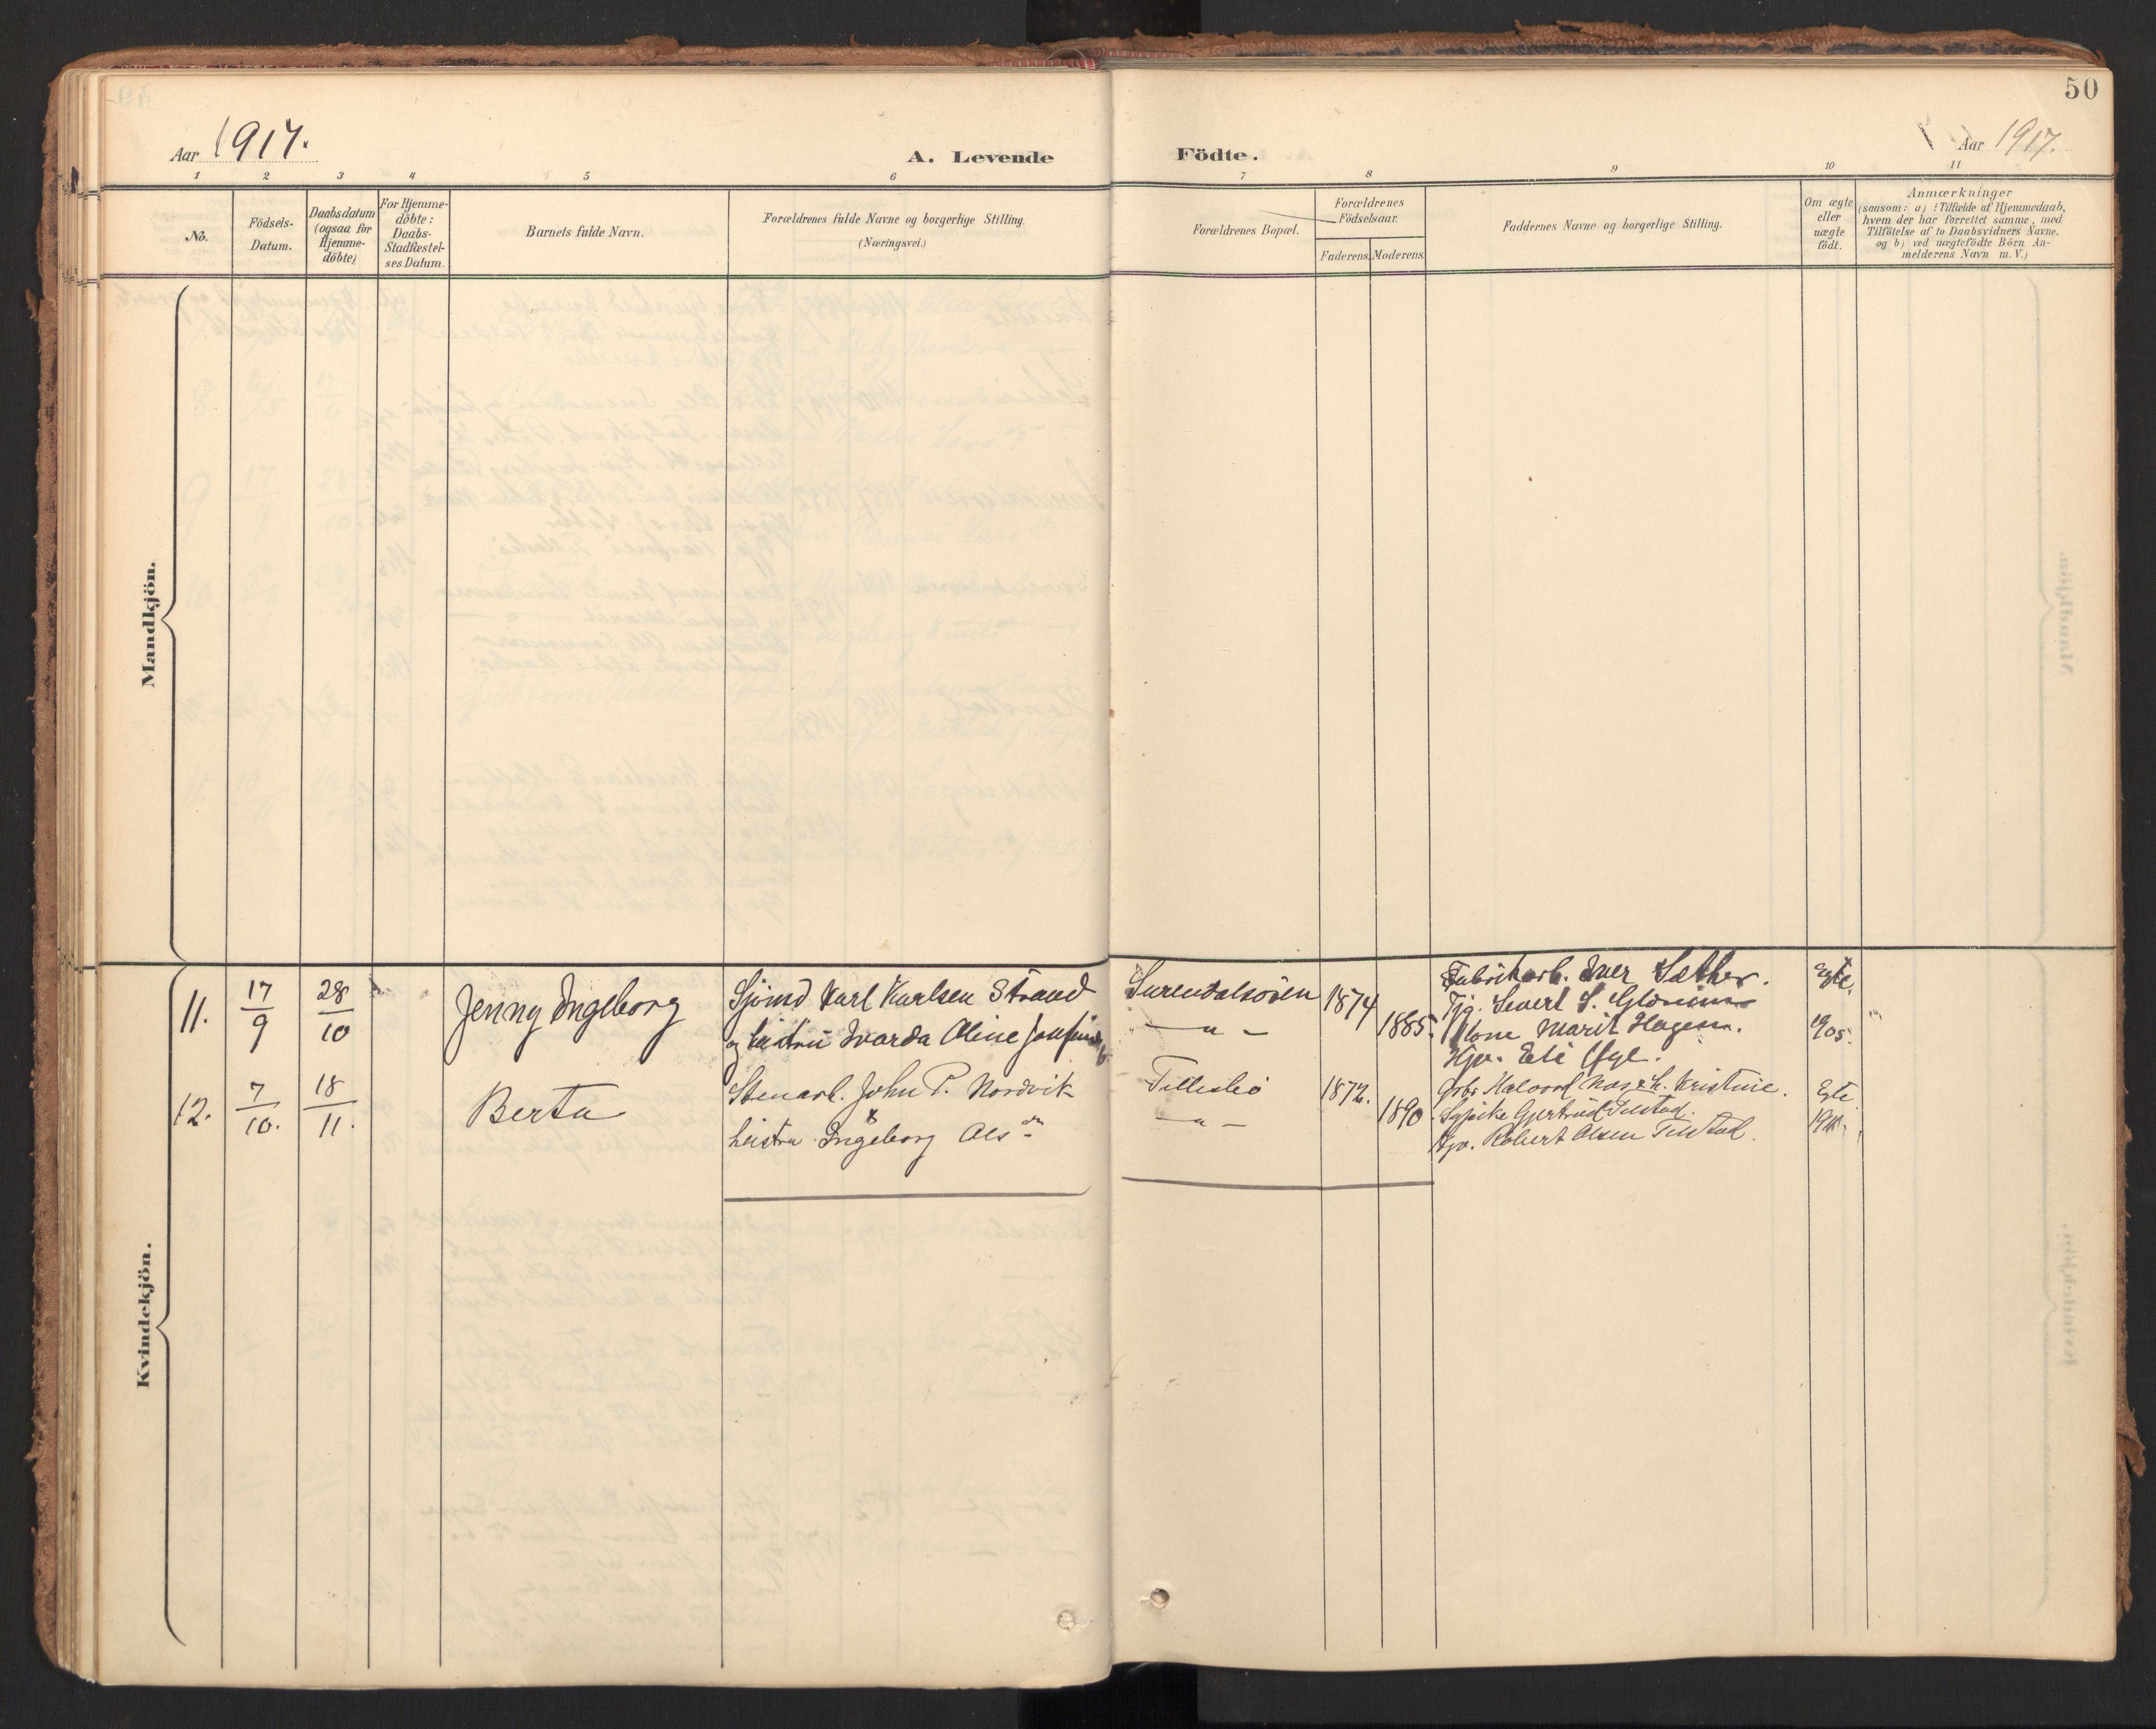 50
Aar 1917.
A. Levende Födte.
Aar 1917.
1 2 3 4 5 6 7 8 9 10 11
No.
Födsels-
Datum.
Daabsdatum
(ogsaa for
Hjemme-
döbte).
For Hjemme-
döbte:
Daabs-
Stadfæstel-
ses Datum.
Barnets fulde Navn.
Forældrenes fulde Navne og borgerlige Stilling.
(Næringsvei.)
Forældrenes Bopæl.
Forældrenes
Födselsaar.
Faderens.
Moderens.
Faddernes Navne og borgerlige Stilling.
Om ægte
eller
uægte
födt.
Anmærkninger
(saasom: a) i Tilfælde af Hjemmedaab,
hvem der har forrettet samme, med
Tilföielse af to Daabsvidners Navne.
og b) ved uægtefödte Börn An-
melderens Navn m. V.)
Mandkjön.
Kvindekjön.
11. 17/9 28/10 Jenny Ingeborg
Sjömd Karl Karlsen Strand
og hustru Ivarda Oline
Surendalsören
— " —
1874
1885.
Fabrikarb. Iver Sæther.
Tjg. Sivert S.
Kone Marit Hagen.
Hjv. Eli Øye.
Egte.
1905.
12. 7/10. 18/11. Berta
Stenarb. John P. Nordvik
& hustru Ingeborg Olsdn
Tellesbö
— " —
1872.
1890
Gbr. Halvord & h. Kristine.
Sypike Gjertrud Telstad.
Robert Olsen Telstad.
Egte